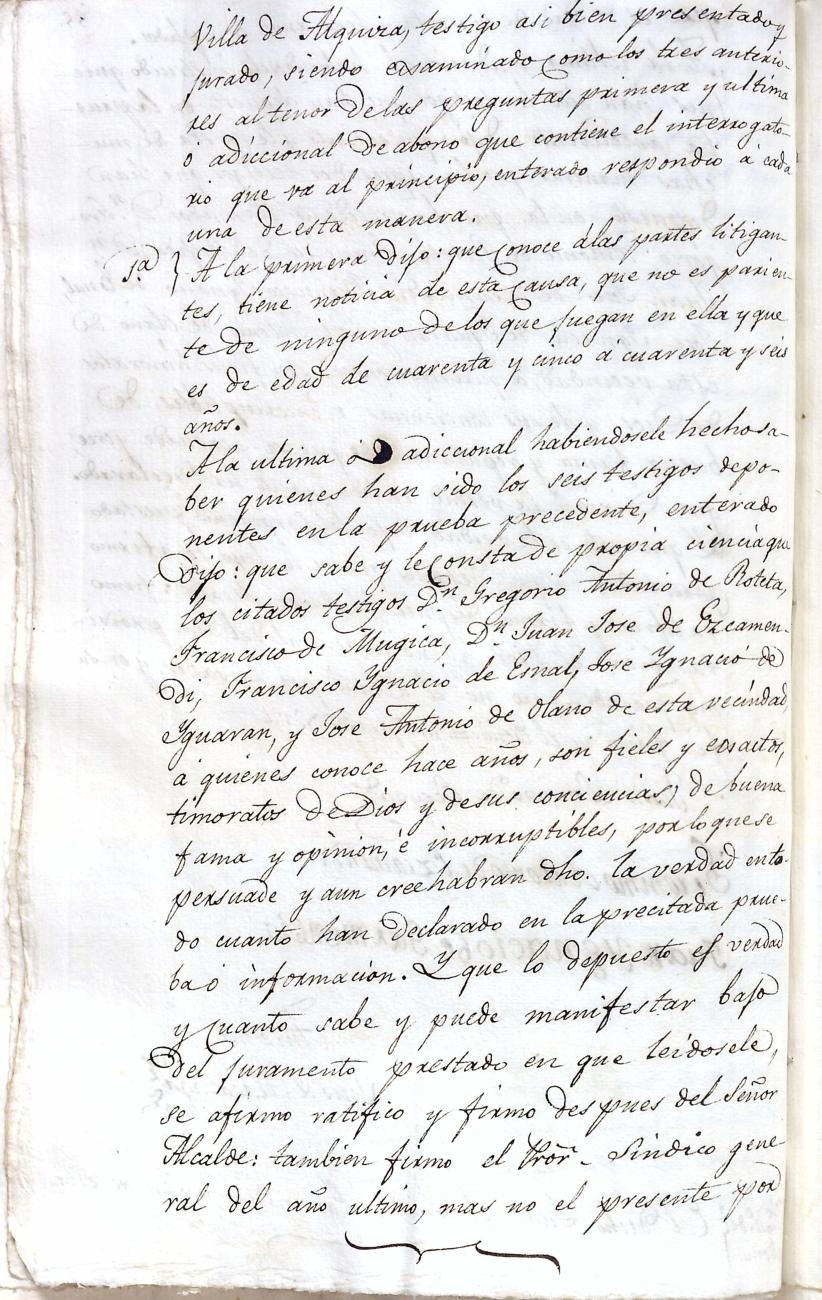 Villa de Alquiza, testigo asi bien presentado y
jurado, siendo examinado como los tres anterio-
res al tenor de las preguntas primera y ultima
ó adiccional de abono que contiene el interrogato-
rio que va al principio, enterado respondio á cada
una de esta manera.
1.ª } A la primera dijo: que conoce á las partes litigan-
tes, tiene noticia de esta causa, que no es parien-
te de ninguno de los que juegan en ella y que
es de edad de cuarenta y cinco á cuarenta y seis
años.
A la ultima ó adiccional habiendosele hecho sa-
ber quienes han sido los seis testigos depo-
nentes en la prueba precedente, enterado
Dijo: que sabe y le consta de propia ciencia que
los citados testigos Dn Gregorio Antonio de Roteta,
Francisco de Mugica, Dn Juan Jose de Ezcamen-
di, Francisco Ygnacio de Esnal, Jose Ygnacio de
Yguaran, y Jose Antonio de Olano de esta vecindad,
á quienes conoce hace años, son fieles y exactos,
timoratos de Dios y de sus conciencias, de buena
fama y opinion, é incorruptibles, por lo que se
persuade y aun cree habran dho. la verdad en to-
do cuanto han declarado en la precitada prue-
ba ó informacion. Y que lo depuesto es verdad
y cuanto sabe y puede manifestar bajo
del juramento prestado en que leidosele,
se afirmo ratifico y firmo despues del Señor
Alcalde: tambien firmo el Pror. Sindico gene-
ral del año ultimo, mas no el presente por